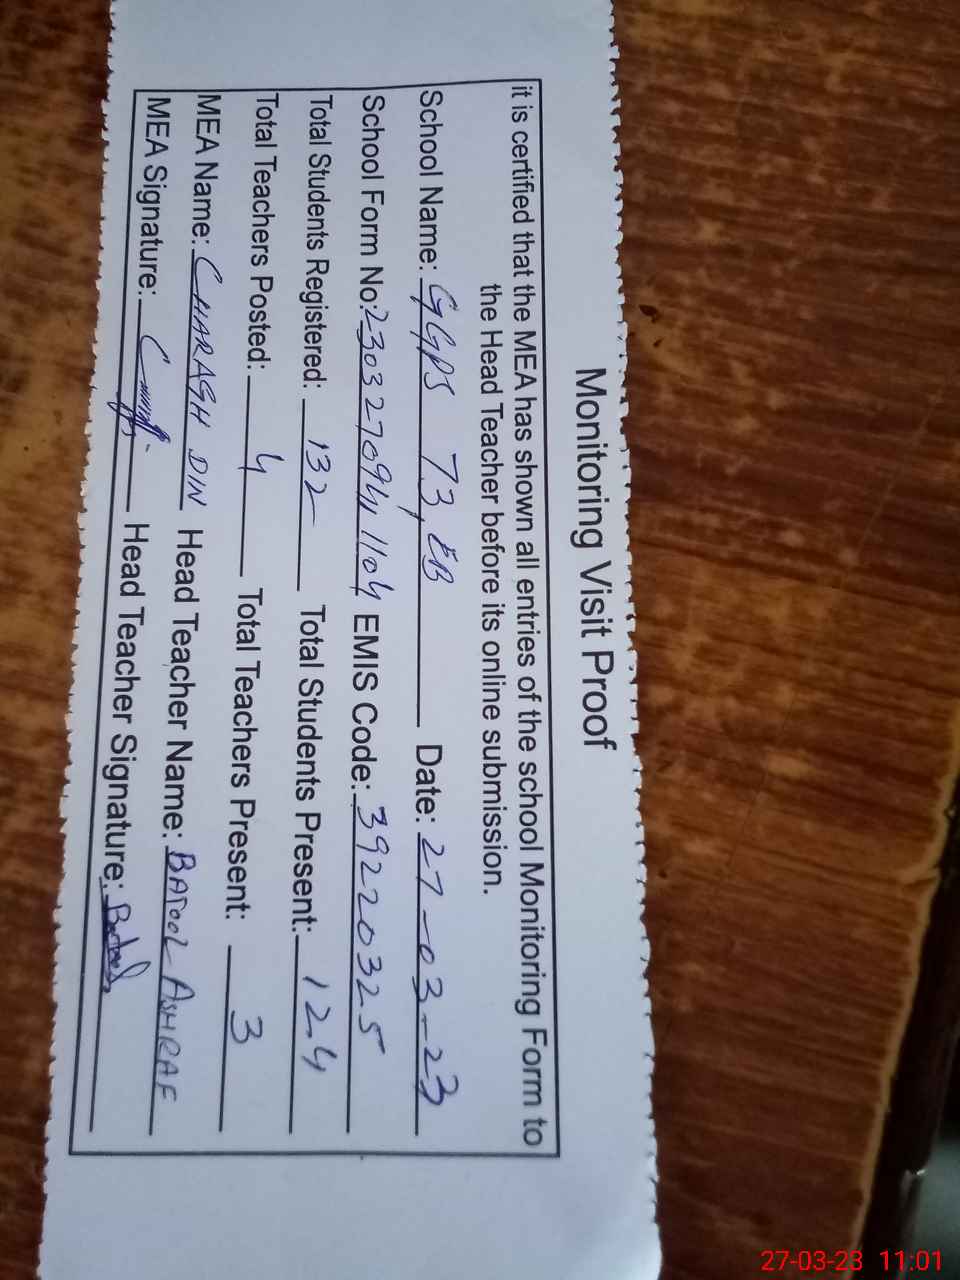 Monitoring Visit Proof
it is certified that the MEA has shown all entries of the school Monitoring Form to
the Head Teacher before its online submission.
School Name: GGPS 73, EB Date: 27-03-23
School Form No: EMIS Code: 39220325
Total Students Registered: 132 Total Students Present: 124
Total Teachers Posted: 4 Total Teachers Present: 3
MEA Name: CHARAGH DIN Head Teacher Name: BATOOL ASHRAF
MEA Signature: Head Teacher Signature:
27-03-23 11:01